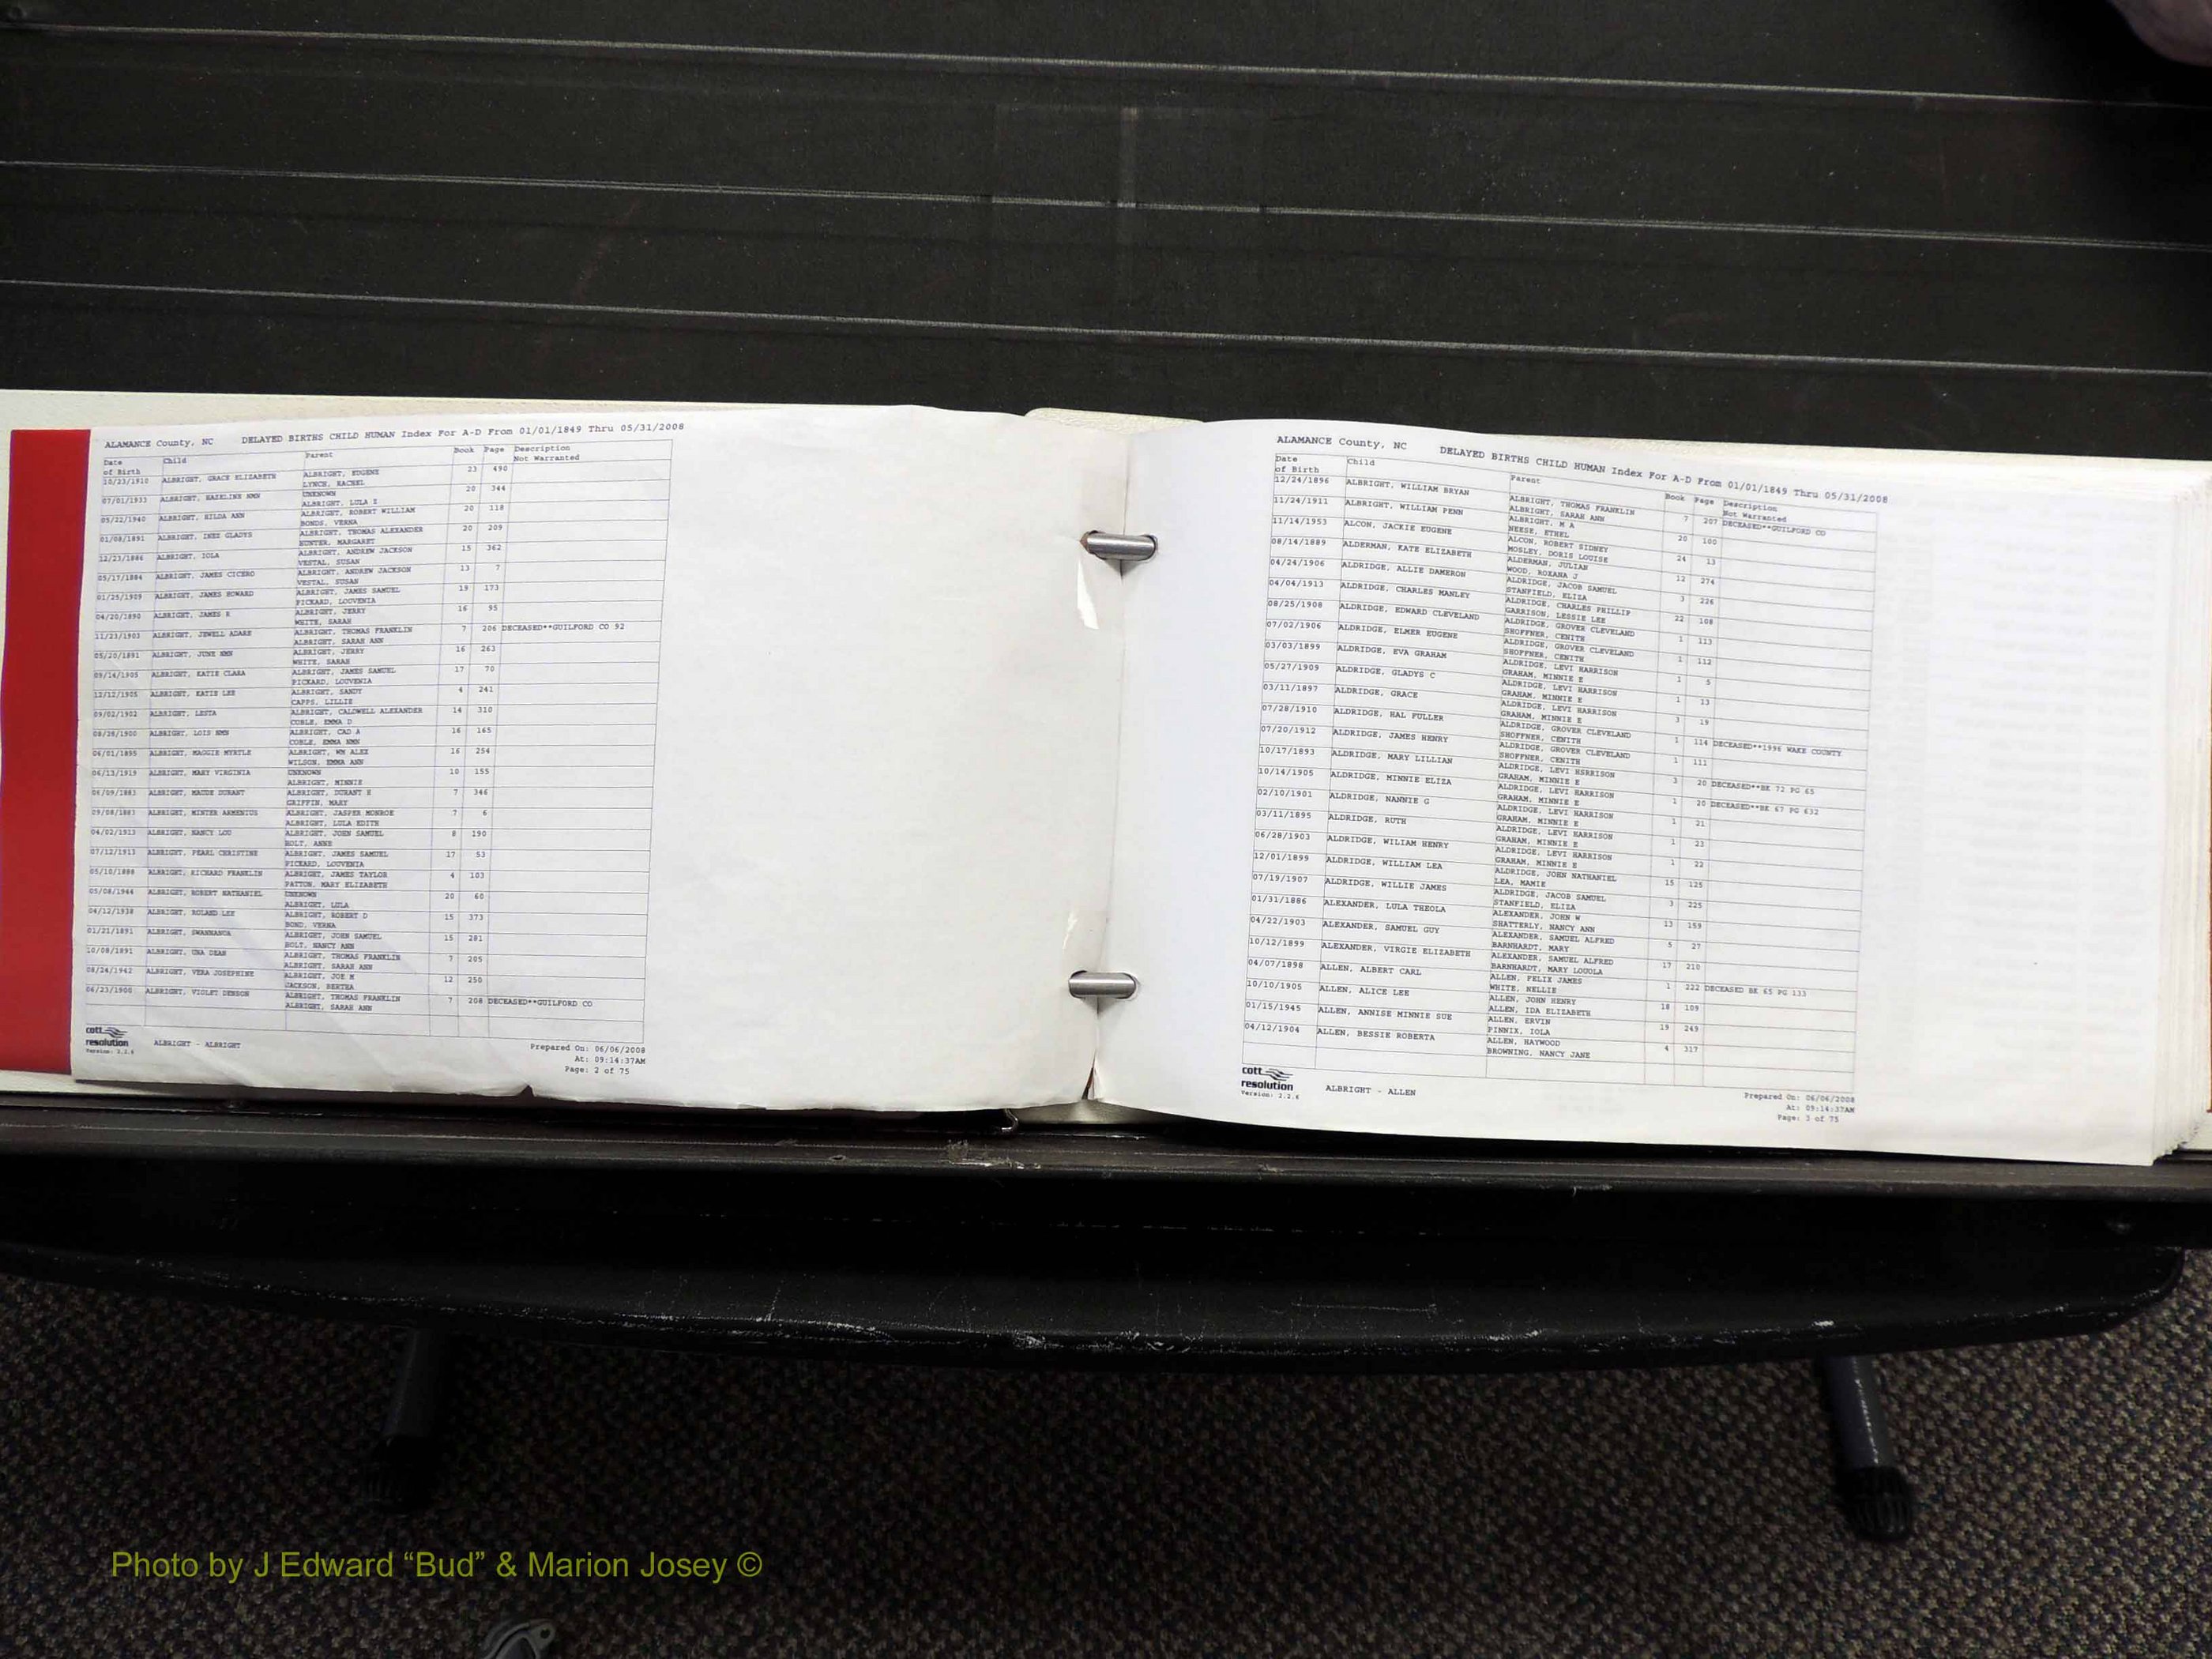 ALAMANCE County, NC DELAYED BIRTHS CHILD HUMAN Index For A-D From 01/01/1849 Thru 05/31/2008
Date Child Parent Book Page Description
of Birth Not Warranted
10/23/1910 ALBRIGHT, GRACE ELIZABETH ALBRIGHT, EUGENE 23 490
LYNCH, RACHEL
07/01/1933 ALBRIGHT, HAZELINE NMN UNKNOWN 20 344
ALBRIGHT, LULA Z
05/22/1940 ALBRIGHT, HILDA ANN ALBRIGHT, ROBERT WILLIAM 20 118
BONDS, VERNA
01/08/1891 ALBRIGHT, INEZ GLADYS ALBRIGHT, THOMAS ALEXANDER 20 209
HUNTER, MARGARET
12/23/1886 ALBRIGHT, IOLA ALBRIGHT, ANDREW JACKSON 15 362
VESTAL, SUSAN
05/17/1884 ALBRIGHT, JAMES CICERO ALBRIGHT, ANDREW JACKSON 13 7
VESTAL, SUSAN
01/25/1909 ALBRIGHT, JAMES HOWARD ALBRIGHT, JAMES SAMUEL 19 173
PICKARD, LOUVENIA
04/20/1890 ALBRIGHT, JAMES R ALBRIGHT, JERRY 16 95
WHITE, SARAH
11/23/1903 ALBRIGHT, JEWELL ADARE ALBRIGHT, THOMAS FRANKLIN 7 206 DECEASED**GUILFORD CO 92
ALBRIGHT, SARAH ANN
05/20/1891 ALBRIGHT, JUNE NMN ALBRIGHT, JERRY 16 263
WHITE, SARAH
09/14/1905 ALBRIGHT, KATIE CLARA ALBRIGHT, JAMES SAMUEL 17 70
PICKARD, LOUVENIA
12/12/1905 ALBRIGHT, KATIE LEE ALBRIGHT, SANDY 4 241
CAPPS, LILLIE
09/02/1902 ALBRIGHT, LESTA ALBRIGHT, CALDWELL ALEXANDER 14 310
COBLE, EMMA D
08/28/1900 ALBRIGHT, LOIS NMN ALBRIGHT, CAD A 16 165
COBLE, EMMA NMN
06/01/1895 ALBRIGHT, MAGGIE MYRTLE ALBRIGHT, WM ALEX 16 254
WILSON, EMMA ANN
06/13/1919 ALBRIGHT, MARY VIRGINIA UNKNOWN 10 155
ALBRIGHT, MINNIE
04/09/1883 ALBRIGHT, MAUDE DURANT ALBRIGHT, DURANT H 7 346
GRIFFIN, MARY
09/08/1883 ALBRIGHT, MINTER ARMENIUS ALBRIGHT, JASPER MONROE 7 6
ALBRIGHT, LULA EDITH
04/02/1913 ALBRIGHT, NANCY LOU ALBRIGHT, JOHN SAMUEL 8 190
HOLT, ANNE
07/12/1913 ALBRIGHT, PEARL CHRISTINE ALBRIGHT, JAMES SAMUEL 17 53
PICKARD, LOUVENIA
05/10/1888 ALBRIGHT, RICHARD FRANKLIN ALBRIGHT, JAMES TAYLOR 4 103
PATTON, MARY ELIZABETH
05/08/1944 ALBRIGHT, ROBERT NATHANIEL UNKNOWN 20 60
ALBRIGHT, LULA
04/12/1938 ALBRIGHT, ROLAND LEE ALBRIGHT, ROBERT D 15 373
BOND, VERNA
01/21/1891 ALBRIGHT, SWANNANOA ALBRIGHT, JOHN SAMUEL 15 281
HOLT, NANCY ANN
10/08/1891 ALBRIGHT, UNA DEAN ALBRIGHT, THOMAS FRANKLIN 7 205
ALBRIGHT, SARAH ANN
08/24/1942 ALBRIGHT, VERA JOSEPHINE ALBRIGHT, JOE M 12 250
JACKSON, BERTHA
06/23/1900 ALBRIGHT, VIOLET DENSON ALBRIGHT, THOMAS FRANKLIN 7 208 DECEASED**GUILFORD CO
ALBRIGHT, SARAH ANN
cott
resolution ALBRIGHT - ALBRIGHT Prepared On: 06/06/2008
Version: 2.2.6 At: 09:14:37AM
Page: 2 of 75
ALAMANCE County, NC DELAYED BIRTHS CHILD HUMAN Index For A-D From 01/01/1849 Thru 05/31/2008
Date Child Parent Book Page Description
of Birth Not Warranted
12/24/1896 ALBRIGHT, WILLIAM BRYAN ALBRIGHT, THOMAS FRANKLIN 7 207 DECEASED**GUILFORD CO
ALBRIGHT, SARAH ANN
11/24/1911 ALBRIGHT, WILLIAM PENN ALBRIGHT, M A 20 100
NEESE, ETHEL
11/14/1953 ALCON, JACKIE EUGENE ALCON, ROBERT SIDNEY 24 13
MOSLEY, DORIS LOUISE
08/14/1889 ALDERMAN, KATE ELIZABETH ALDERMAN, JULIAN 12 274
WOOD, ROXANA J
04/24/1906 ALDRIDGE, ALLIE DAMERON ALDRIDGE, JACOB SAMUEL 3 226
STANFIELD, ELIZA
04/04/1913 ALDRIDGE, CHARLES MANLEY ALDRIDGE, CHARLES PHILLIP 22 108
GARRISON, LESSIE LEE
08/25/1908 ALDRIDGE, EDWARD CLEVELAND ALDRIDGE, GROVER CLEVELAND 1 113
SHOFFNER, CENITH
07/02/1906 ALDRIDGE, ELMER EUGENE ALDRIDGE, GROVER CLEVELAND 1 112
SHOFFNER, CENITH
03/03/1899 ALDRIDGE, EVA GRAHAM ALDRIDGE, LEVI HARRISON 1 5
GRAHAM, MINNIE E
05/27/1909 ALDRIDGE, GLADYS C ALDRIDGE, LEVI HARRISON 1 13
GRAHAM, MINNIE E
03/11/1897 ALDRIDGE, GRACE ALDRIDGE, LEVI HARRISON 3 19
GRAHAM, MINNIE E
07/28/1910 ALDRIDGE, HAL FULLER ALDRIDGE, GROVER CLEVELAND 1 114 DECEASED**1996 WAKE COUNTY
SHOFFNER, CENITH
07/20/1912 ALDRIDGE, JAMES HENRY ALDRIDGE, GROVER CLEVELAND 1 111
SHOFFNER, CENITH
10/17/1893 ALDRIDGE, MARY LILLIAN ALDRIDGE, LEVI HSRRISON 3 20 DECEASED**BK 72 PG 65
GRAHAM, MINNIE E
10/14/1905 ALDRIDGE, MINNIE ELIZA ALDRIDGE, LEVI HARRISON 1 20 DECEASED**BK 67 PG 632
GRAHAM, MINNIE E
02/10/1901 ALDRIDGE, NANNIE G ALDRIDGE, LEVI HARRISON 1 21
GRAHAM, MINNIE E
03/11/1895 ALDRIDGE, RUTH ALDRIDGE, LEVI HARRISON 1 23
GRAHAM, MINNIE E
06/28/1903 ALDRIDGE, WILIAM HENRY ALDRIDGE, LEVI HARRISON 1 22
GRAHAM, MINNIE E
12/01/1899 ALDRIDGE, WILLIAM LEA ALDRIDGE, JOHN NATHANIEL 15 125
LEA, MAMIE
07/19/1907 ALDRIDGE, WILLIE JAMES ALDRIDGE, JACOB SAMUEL 3 225
STANFIELD, ELIZA
01/31/1886 ALEXANDER, LULA THEOLA ALEXANDER, JOHN W 13 159
SHATTERLY, NANCY ANN
04/22/1903 ALEXANDER, SAMUEL GUY ALEXANDER, SAMUEL ALFRED 5 27
BARNHARDT, MARY
10/12/1899 ALEXANDER, VIRGIE ELIZABETH ALEXANDER, SAMUEL ALFRED 17 210
BARNHARDT, MARY LOUOLA
04/07/1898 ALLEN, ALBERT CARL ALLEN, FELIX JAMES 1 222 DECEASED BK 65 PG 133
WHITE, NELLIE
10/10/1905 ALLEN, ALICE LEE ALLEN, JOHN HENRY 18 109
ALLEN, IDA ELIZABETH
01/15/1945 ALLEN, ANNISE MINNIE SUE ALLEN, ERVIN 19 249
PINNIX, IOLA
04/12/1904 ALLEN, BESSIE ROBERTA ALLEN, HAYWOOD 4 317
BROWNING, NANCY JANE
cott
resolution ALBRIGHT - ALLEN Prepared On: 06/06/2008
Version: 2.2.6 At: 09:14:37AM
Page: 3 of 75
Photo by J Edward “Bud” & Marion Josey ©